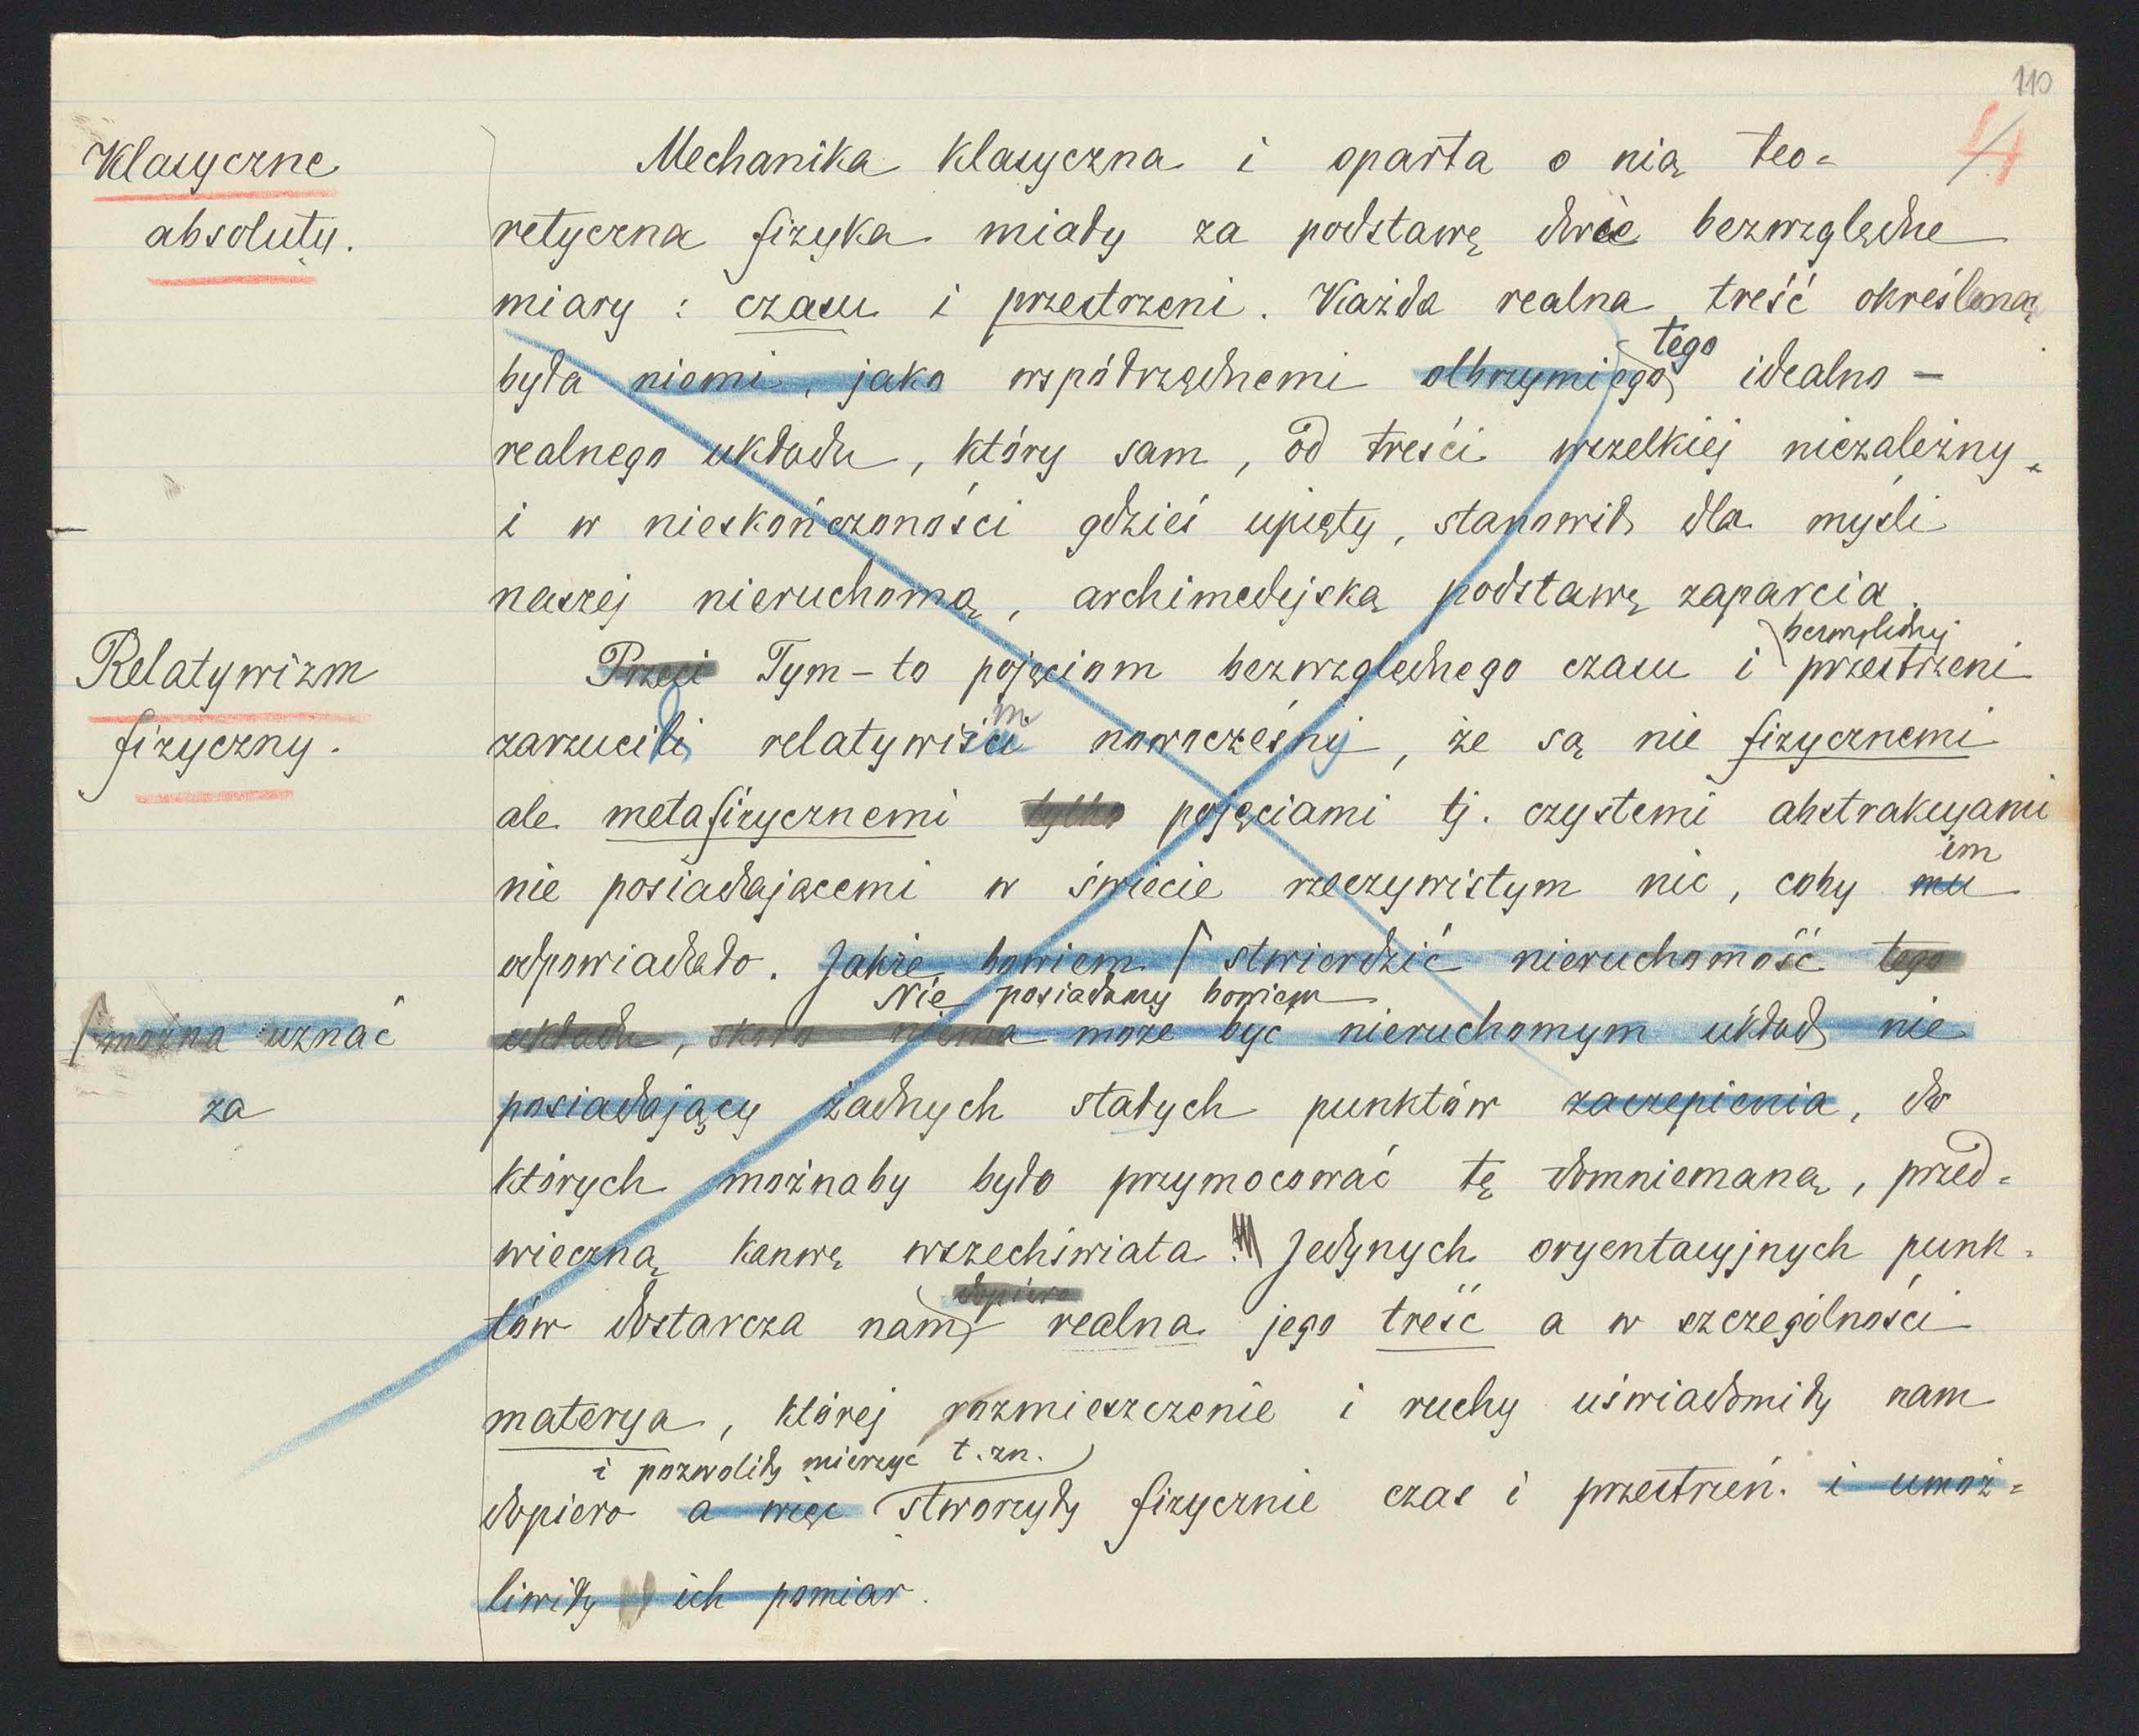 110
4
Klasyczne
absoluty.
Mechanika klasyczna i oparta o nią teo=
retyczna fizyka miały za podstawę dwie bezwzględne
miary : czasu i przestrzeni. Każda realna treść określoną
tego
była niemi, jako współrzędnemi olbrzymiego idealno —
realnego układu, który sam, od treści wszelkiej niezależny
i w nieskończoności gdzieś upięty, stanowił dla myśli
naszej nieruchomą, archimedejską podstawę zaparcia.
Relatywizm
fizyczny.
bezwzględnej
Przeci Tym-to pojęciom bezwzględnego czasu i przestrzeni
m
zarzucili relatywiści nowocześni, że są nie fizycznemi
ale metafizycznemi tylko pojęciami tj. czystemi abstrakcyami
im
nie posiadającemi w świecie rzeczywistym nic, coby mu
odpowiadało. Jakże bowiem / stwierdzić nieruchomość tego
Nie posiadamy bowiem
/ można uznać
za
układu, skoro niema może być nieruchomym układ nie
posiadający żadnych stałych punktów zaczepienia, do
których możnaby było przymocować tę domniemaną, przed=
wieczną kanwę wszechświata Jedynych oryentacyjnych punk=
dopiero
tów dostarcza nam realna jego treść a w szczególności
materya, której rozmieszczenie i ruchy uświadomiły nam
i pozwoliły mierzyć t.zn.
dopiero a więc stworzyły fizycznie czas i przestrzeń. i umoż=
liwiły ich pomiar.